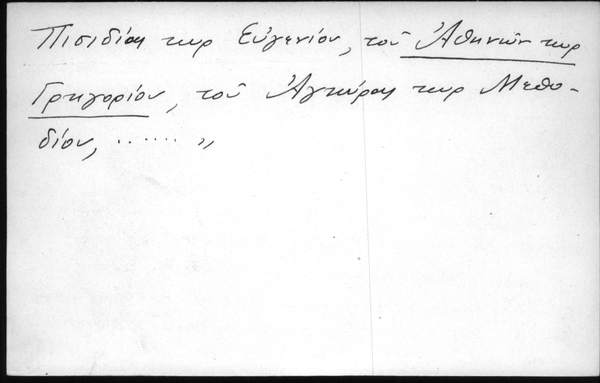 Πισιδίας κυρ Εὐγενίου, τοῦ Ἀθηνῶν κυρ
Γρηγορίου, τοῦ Ἀγκύρας κυρ Μεθο-
δίου, ...... „